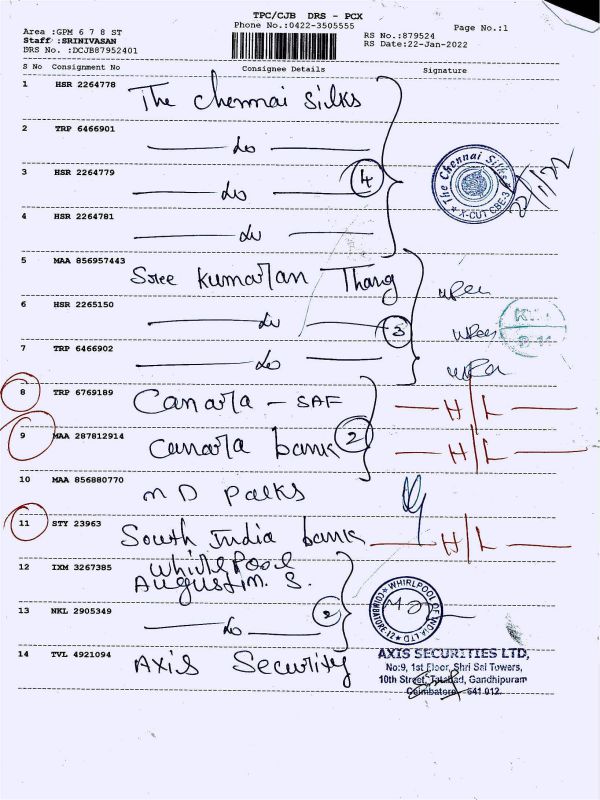 TPC/CJB DRS - PCX
Area :GPM 6 7 8 ST
Phone No.:0422-3505555
Page No.:1
Staff :SRINIVASAN
RS No.:879524
DRS No. :DCJB87952401
RS Date:22-Jan-2022
S No Consignment No Consignee Details Signature
1 HSR 2264778 The Chennai Silks
2 TRP 6466901 do
3 HSR 2264779 do 4
The Chennai Silks
X-CUT CBE-3
4 HSR 2264781 do
5 MAA 856957443 Sree Kumaran Thang
6 HSR 2265150 do 3
7 TRP 6466902 do
8 TRP 6769189 Canara - SAF H/L
9 MAA 287812914 Canara bank 2 H/L
10 MAA 856880770 M D Palks
11 STY 23963 South India bank H/L
12 IXM 3267385 Whirlpool
Augustin. S.
13 NKL 2905349 do 2
WHIRLPOOL OF INDIA LTD
COIMBATORE-12
14 TVL 4921094 Axis Security
AXIS SECURITIES LTD,
No:9, 1st Floor, Shri Sai Towers,
10th Street, Tatabad, Gandhipuram
Coimbatore - 641 012.